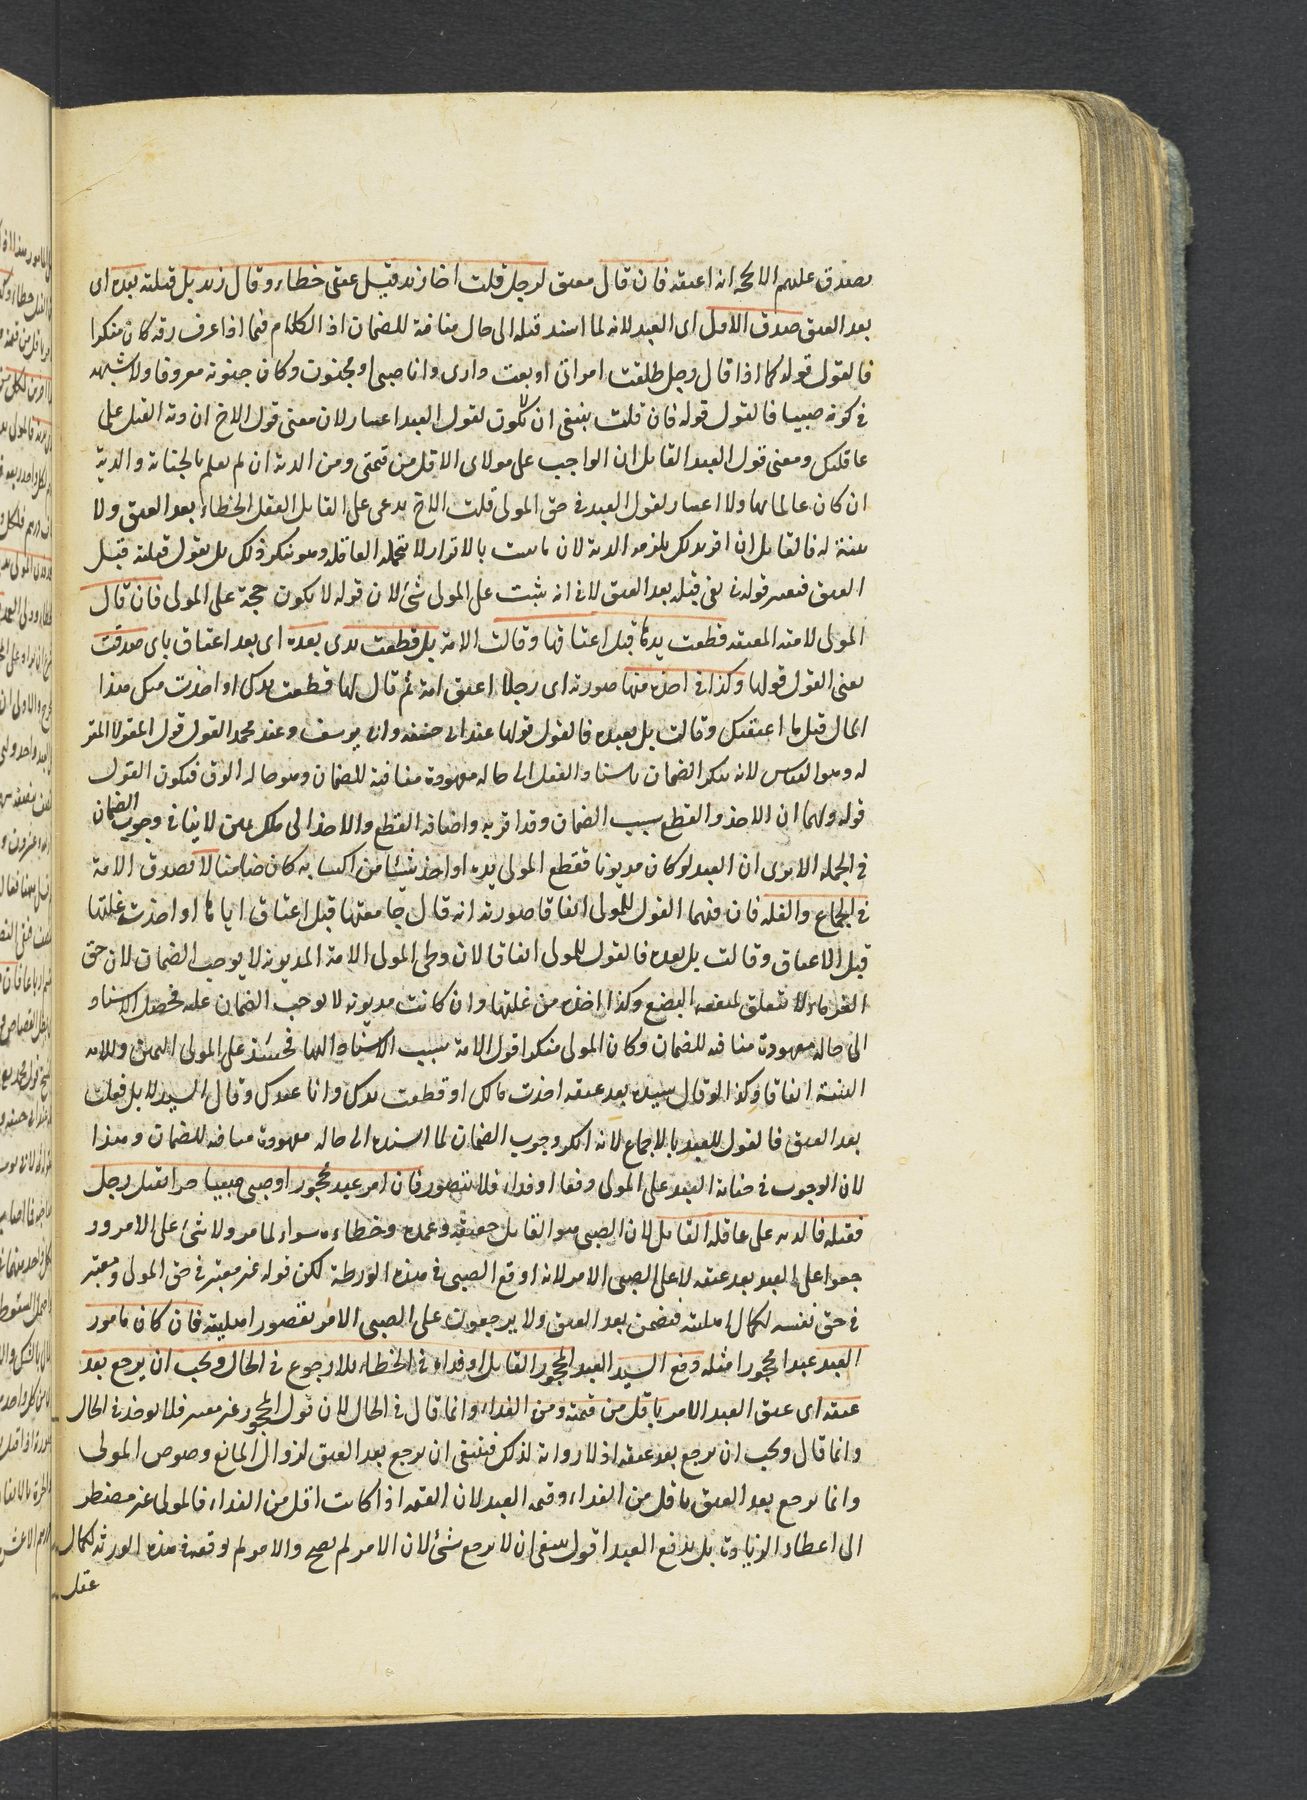 يصدق عليهم الا بحجة انه اعتقه فان قال معتق لرجل قتلت اخا زيد قبل عتقى خطاء وقال زيد بل قتلته بعده اى
بعد العتق صدق الاول اى العبد لانه لما اسند قتله الى حال منافية للضمان اذ الكلام فيما اذا عرف رقه كان منكرا
فالقول قوله كما اذا قال رجل طلقت امراتى او بعت دارى وانا صبى او مجنون وكان جنونه معروفا ولا شبهة
فى كونه صبيا فالقول قوله فان قلت ينبغى ان لا يكون لقول العبد اعتبار لان معنى قول الاخ ان دية القتل على
عاقلتك ومعنى قول العبد القاتل ان الواجب على مولاى الاقل من قيمتى ومن الدية ان لم يعلم بالجناية والدية
ان كان عالما بها ولا اعتبار لقول العبد فى حق المولى قلت الاخ يدعى على القاتل القتل الخطاء بعد العتق ولا
بينة له فالقاتل ان اقر بذلك يلزمه الدية لان ما يثبت بالاقرار لا يتحمله العاقلة وهو منكر ذلك بل يقول قتلته قبل
العتق فيعتبر قوله فى نفى قتله بعد العتق لا فى انه يثبت على المولى شئ لان قوله لا يكون حجة على المولى فان قال
المولى لامته المعتقة قطعت يدها قبل اعتاقها وقالت الامة بل قطعت يدى بعده اى بعد اعتاق باى صدقت
يعنى القول قولها وكذا فى اخذه منها صورته اى رجلا اعتق امة ثم قال لها قطعت يدك او اخذت منك هذا
المال قبل ما اعتقتك وقالت بل بعده فالقول قولها عند ابى حنيفة وابى يوسف وعند محمد القول قول المقر لا المقر
له وهو القياس لانه ينكر الضمان باسناد الفعل الى حالة معهودة منافية للضمان وهو حالة الرق فيكون القول
قوله ولهما ان الاخذ والقطع سبب الضمان وقد اقر به واضافة القطع والاخذ الى ملك يمين لا ينافى وجوب الضمان
فى الجملة الا يرى ان العبد لو كان مديونا فقطع المولى يده او اخذ شيئا من اكتسابه كان ضامنا لا تصدق الامة
فى الجماع والغلة فان فيهما القول للمولى اتفاقا صورته انه قال جامعتها قبل اعتاق اياها او اخذت غلتها
قبل الاعتاق وقالت بل بعده فالقول للمولى اتفاقا لان وطى المولى الامة المديونة لا يوجب الضمان لان حق
الغرماء لا يتعلق بمنفعة البضع وكذا اخذه من غلتها وان كانت مديونة لا يوجب الضمان عليه فحصل الاسناد
الى حالة معهودة منافية للضمان وكان المولى منكرا قول الامة بسبب الاسناد اليها فحينئذ على المولى اليمين وللامة
البينة اتفاقا وكذا لو قال سيده بعد عتقه اخذت مالك او قطعت يدك وانا عبدك وقال السيد لا بل فعلت
بعد العتق فالقول للعبد بالاجماع لانه انكر وجوب الضمان لما اسنده الى حالة معهودة منافية للضمان وهذا
لان الوجوب فى جناية العبد على المولى دفعا او فداء فلا يتصور فان امر عبد محجور او صبى صبيا حرا بقتل رجل
فقتله فالدية على عاقلة القاتل لان الصبى هو القاتل حقيقة وعمده وخطاءه سواء لما مر ولا شئ على الامر ور
جعوا على العبد بعد عتقه لا على الصبى الامر لانه اوقع الصبى فى هذه الورطة لكن قوله غير معتبر فى حق المولى ومعتبر
فى حق نفسه لكمال اهليته فيضمن بعد العتق ولا يرجعون على الصبى الامر بقصور اهليته فان كان مامور
العبد عبدا محجورا مثله دفع السيد العبد المحجور القاتل او فداه فى الخطاء بلا رجوع فى الحال ويجب ان يرجع بعد
عتقه اى عتق العبد الامر باقل من قيمته ومن الفداء وانما قال فى الحال لان قول المحجور غير معتبر فلا يوخذ فى الحال
وانما قال ويجب ان يرجع بعد عتقه اذ لا رواية لذلك فينبغى ان يرجع بعد العتق لزوال المانع وهو حق المولى
وانما يرجع بعد العتق باقل من الفداء وقيمة العبد لان القيمة اذا كانت اقل من الفداء فالمولى غير مضطر
الى اعطاء الزيادة بل يدفع العبد اقول ينبغى ان لا يرجع شئ لان الامر لم يصح والامر لم يوقعه فى هذه الورطة لكمال
عقل